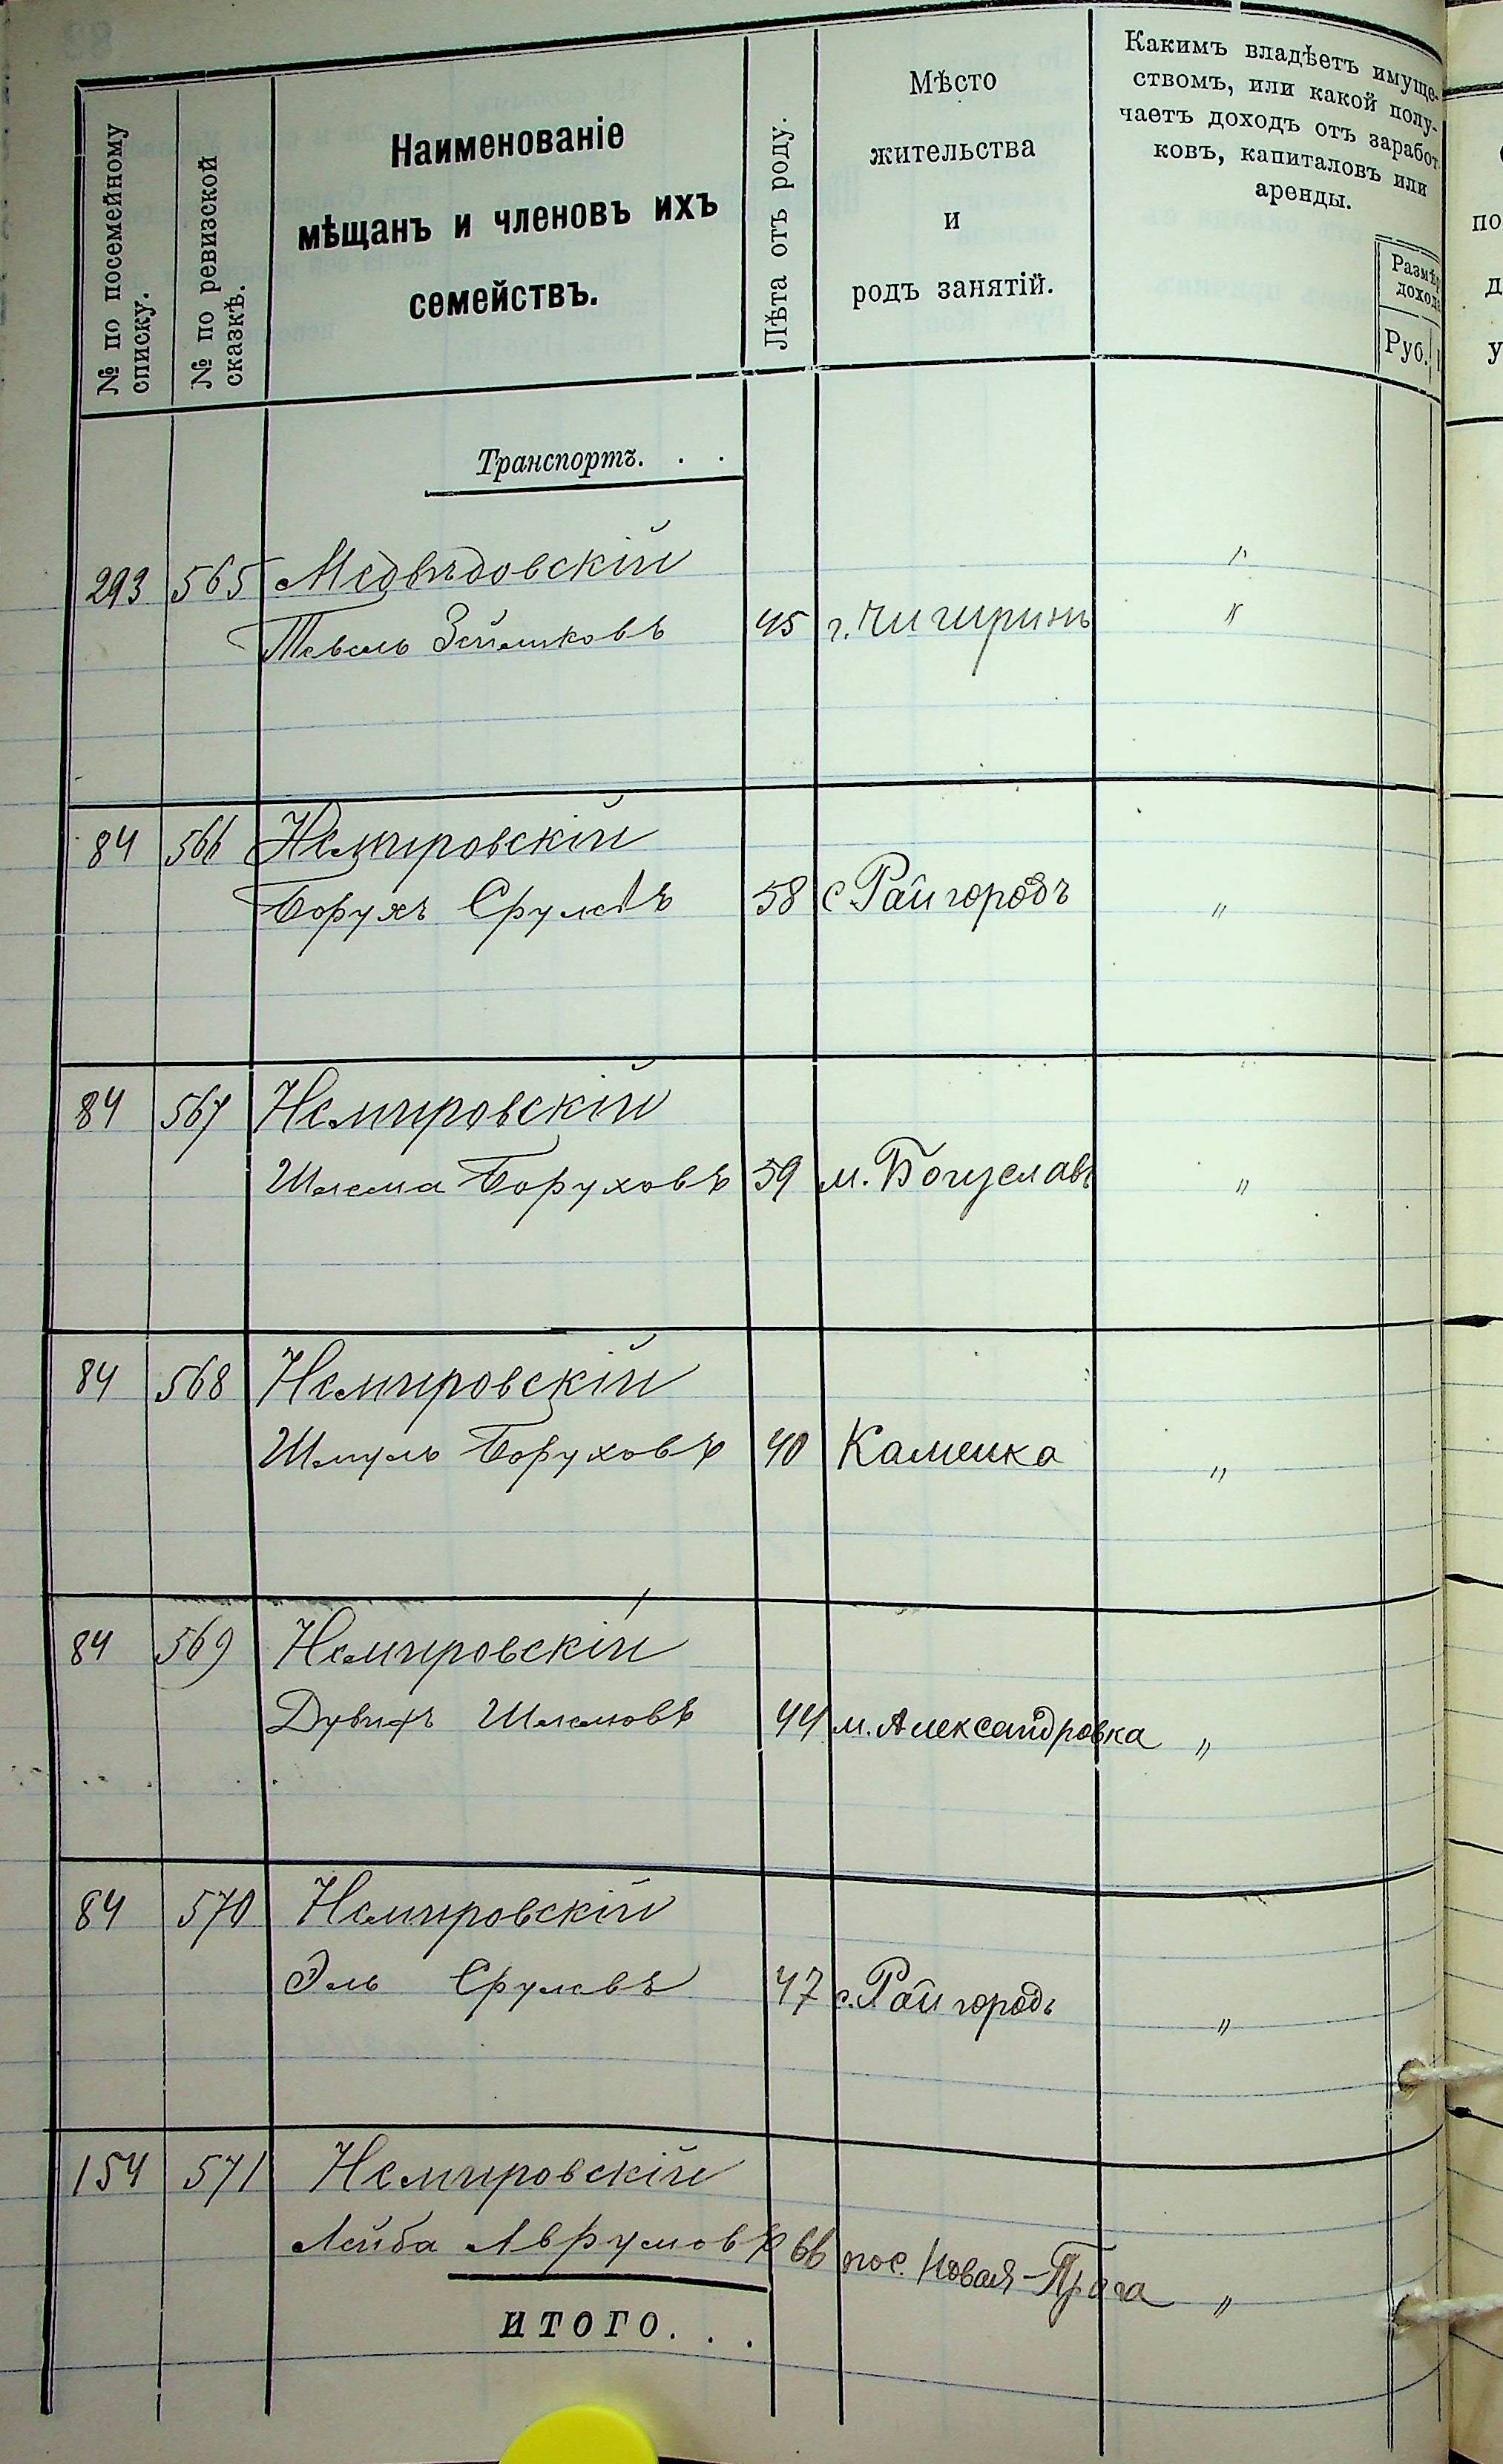 № по посемейному
списку.
№ по ревизской
сказкѣ.
Наименованіе
мѣщанъ и членовъ ихъ
семействъ.
Лѣта отъ роду.
Мѣсто
жительства
и
родъ занятій.
Какимъ владѣетъ имуще-
ствомъ, или какой полу-
чаетъ доходъ отъ заработ
ковъ, капиталовъ или
аренды.
Размѣр
доход
Руб.
Транспортъ. . .
293 565 Медвѣдовскій "
Тевель Зейликовъ 45 г. Чигиринъ "
84 566 Немировскій
Борухъ Срулевъ 58 с Райгородъ "
84 567 Немировскій
Шлема Боруховъ 59 м. Богуславъ "
84 568 Немировскій
Шмуль Боруховъ 40 Каменка "
84 569 Немировскій
Дувидъ Шлемовъ 44 м. Александровка "
84 570 Немировскій
Эль Срулевъ 47 с. Райгородъ "
154 571 Немировскій
Лейба Аврумовъ 66 пос. Новая-Прага "
ИТОГО. . .
по
д
у